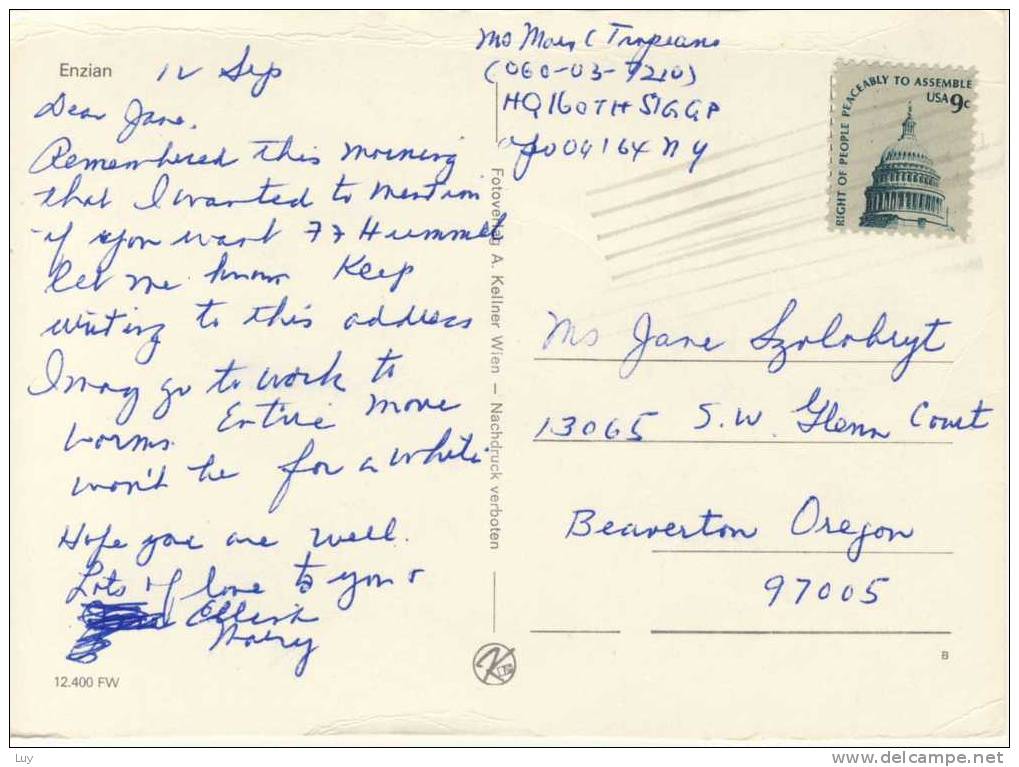 Enzian 12 Sep
Dear Jane,
Remembered this morning
that I wanted to mention
if you want 77 Hummel
let me know Keep
writing to this address
I may go to work to
worms. Entire move
won't be for a while
Hope you are well.
Lots of love to you &
Mary
12.400 FW
Ms Mary C Tropeano
HQ 160TH SIG GP
apo 09164 NY
RIGHT OF PEOPLE PEACEABLY TO ASSEMBLE
USA 9c
Fotoverlag A. Kellner Wien – Nachdruck verboten
Ms Jane
13065 S.W. Glenn Court
Beaverton Oregon
97005
K
B
Luy
www.delcampe.net